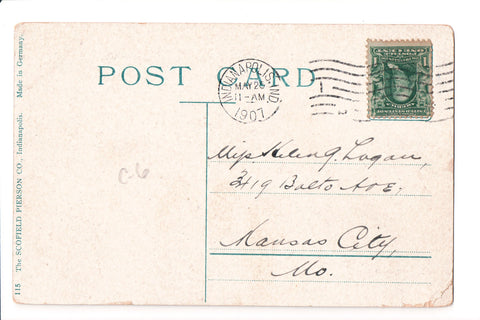 POST CARD
INDIANAPOLIS, IND.
MAY 25
11-AM
1907
1
C-6
Miss Helen G. Logan,
3419 Balto Ave.
Kansas City,
Mo.
115 The SCOFIELD PIERSON CO., Indianapolis. Made in Germany.